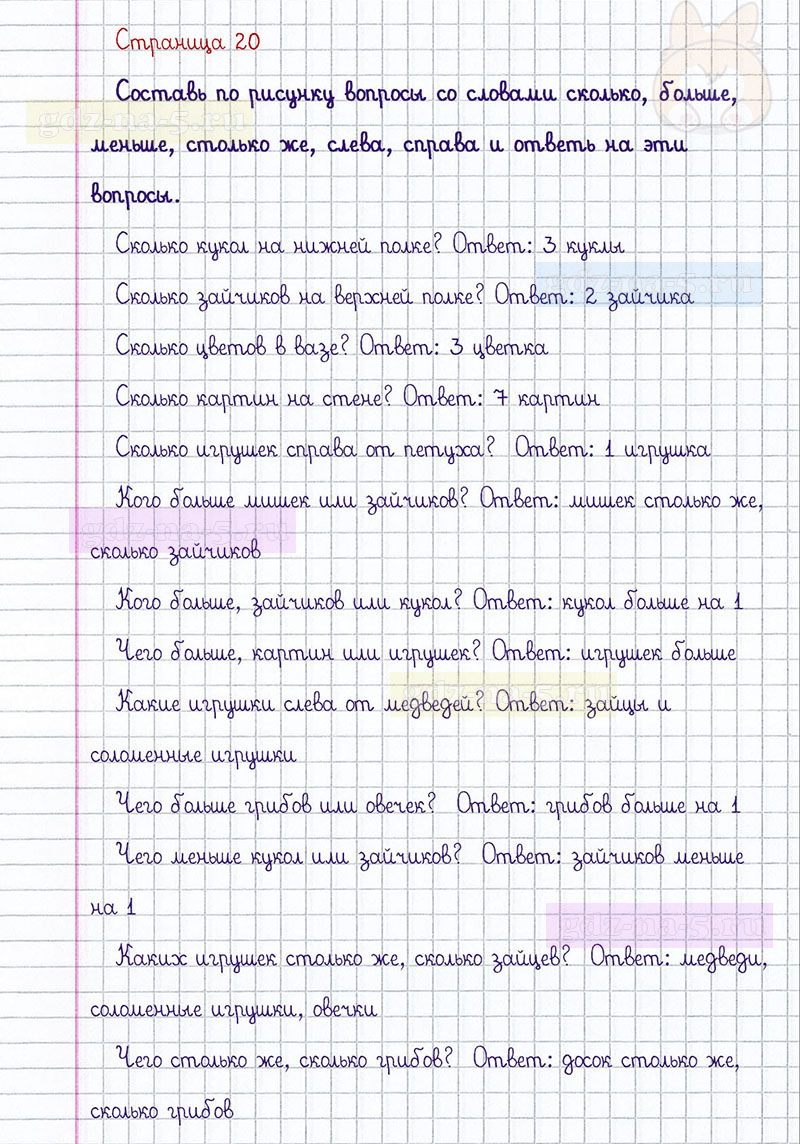 Страница 20
Составь по рисунку вопросы со словами сколько, больше,
gdz-na-5.ru
меньше, столько же, слева, справа и ответь на эти
вопросы.
Сколько кукол на нижней полке? Ответ: 3 куклы
gdz-na-5.ru
Сколько зайчиков на верхней полке? Ответ: 2 зайчика
Сколько цветов в вазе? Ответ: 3 цветка
Сколько картин на стене? Ответ: 7 картин
Сколько игрушек справа от петуха? Ответ: 1 игрушка
Кого больше мишек или зайчиков? Ответ: мишек столько же,
gdz-na-5.ru
сколько зайчиков
Кого больше, зайчиков или кукол? Ответ: кукол больше на 1
Чего больше, картин или игрушек? Ответ: игрушек больше
gdz-na-5.ru
Какие игрушки слева от медведей? Ответ: зайцы и
соломенные игрушки
Чего больше грибов или овечек? Ответ: грибов больше на 1
Чего меньше кукол или зайчиков? Ответ: зайчиков меньше
на 1
gdz-na-5.ru
Каких игрушек столько же, сколько зайцев? Ответ: медведи,
соломенные игрушки, овечки
Чего столько же, сколько грибов? Ответ: досок столько же,
сколько грибов